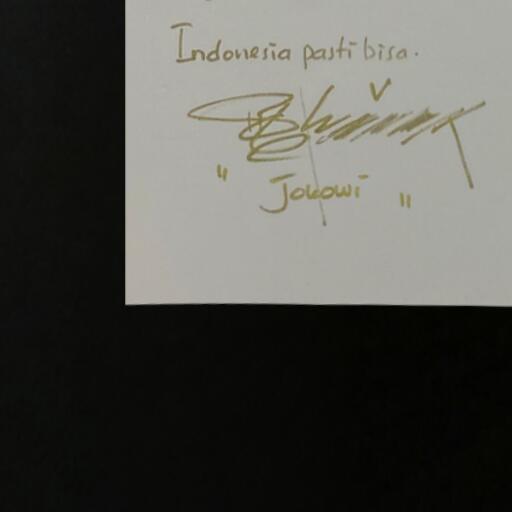 Indonesia pasti bisa.
" Jokowi "